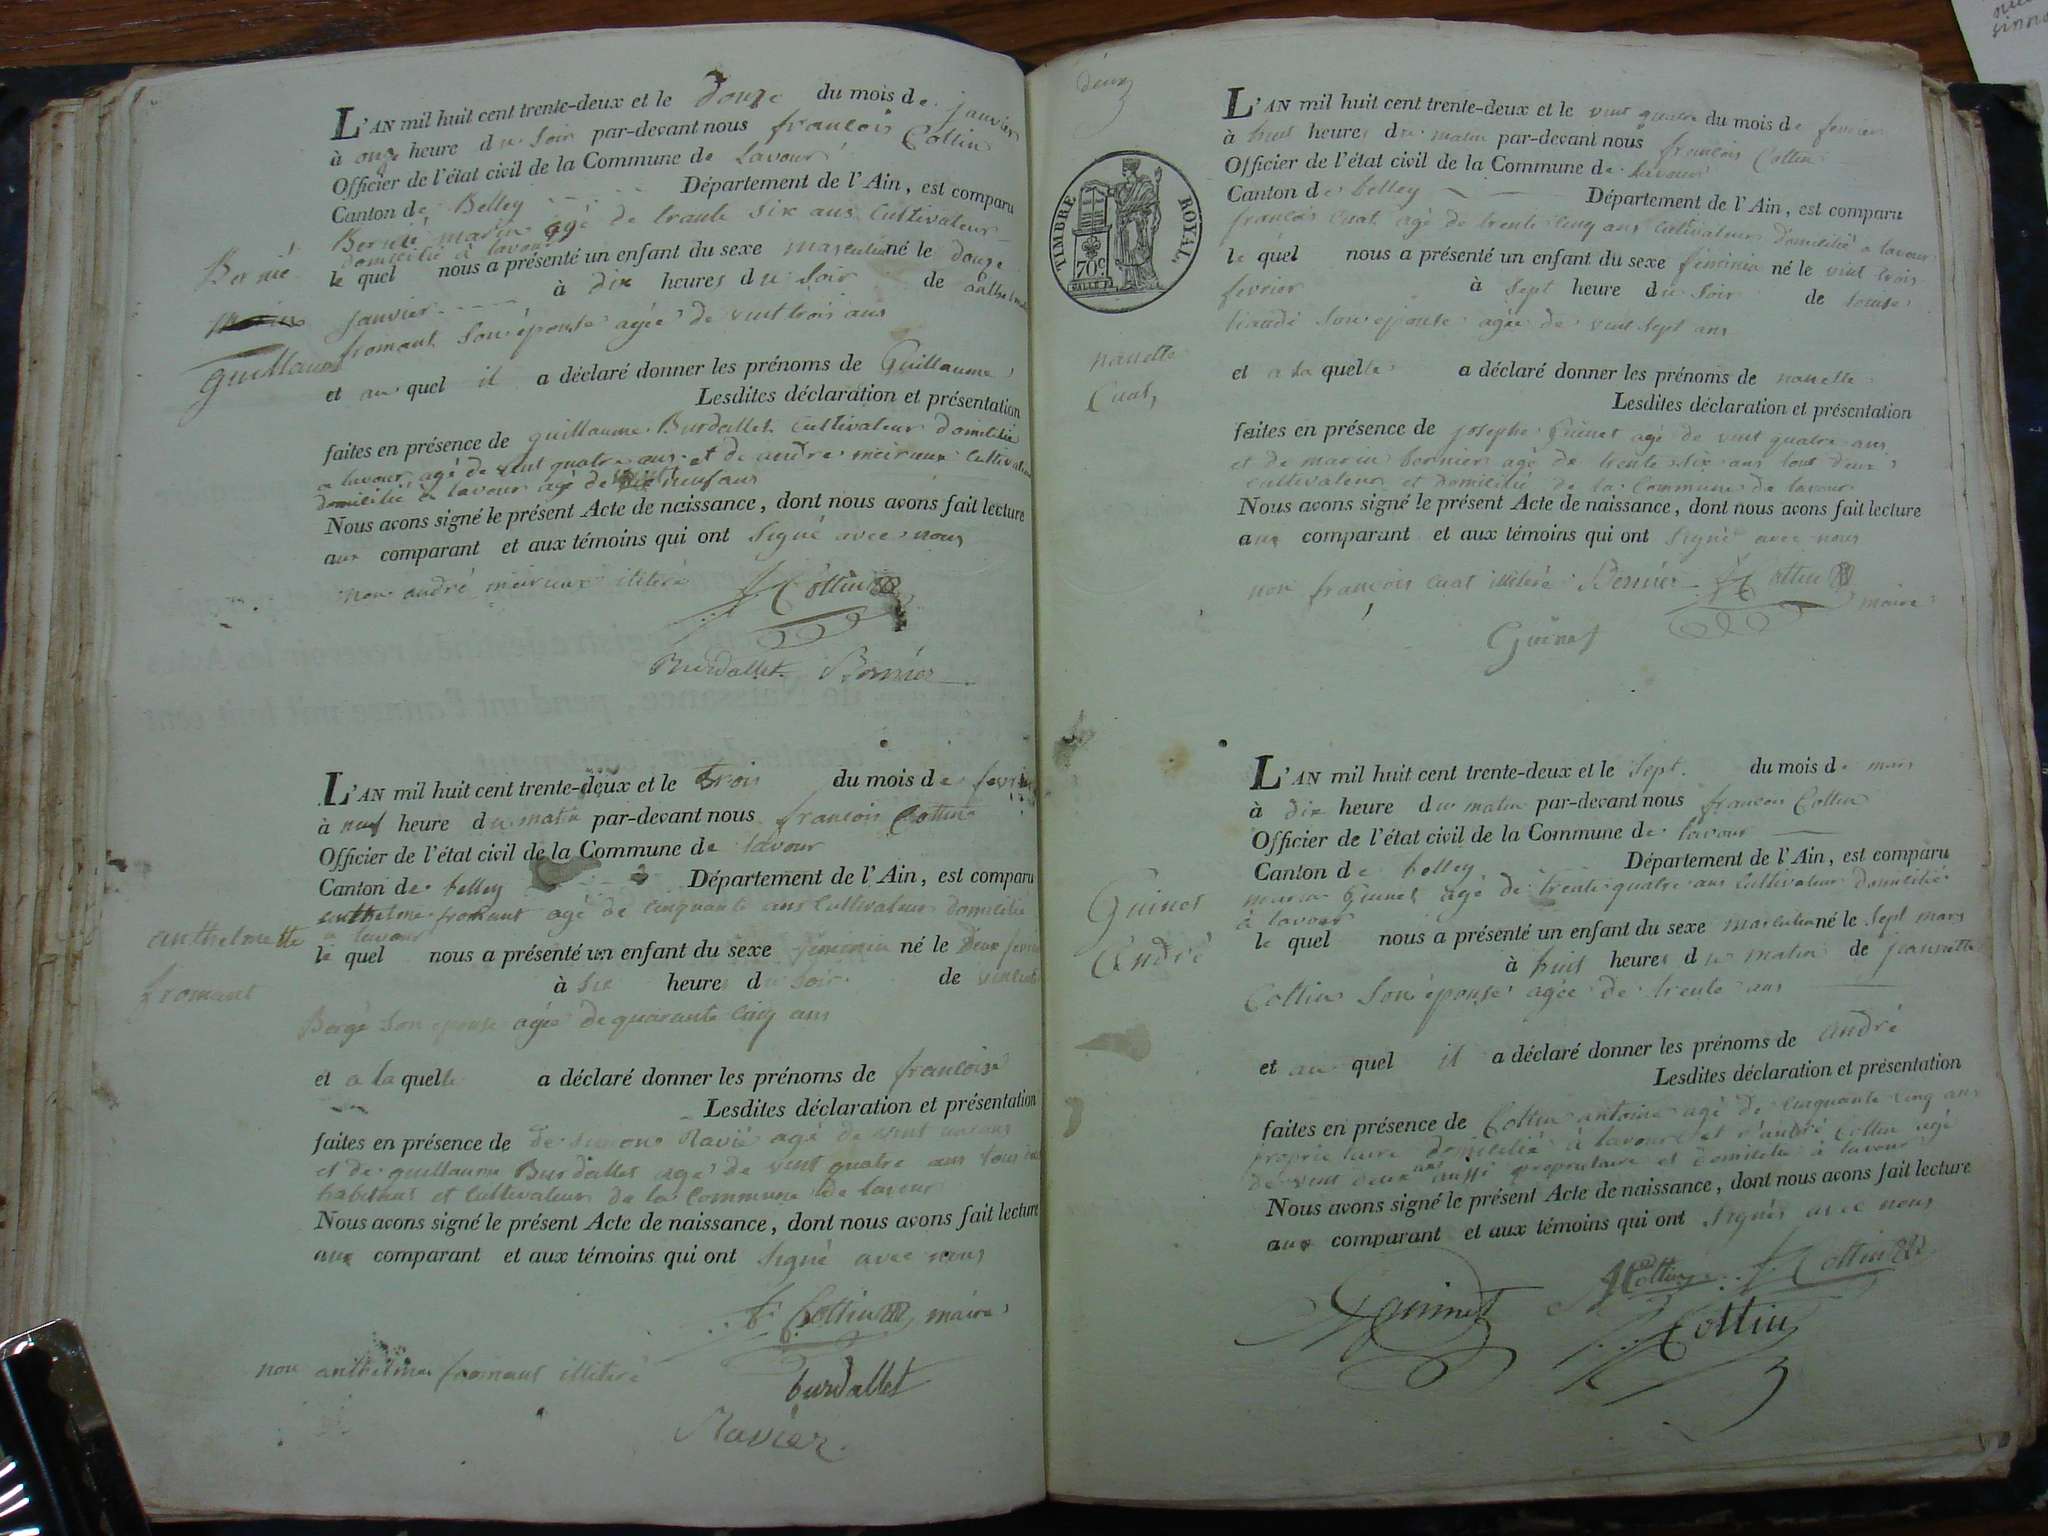 L'AN mil huit cent trente-deux et le douze du mois de janvier
à onze heure du soir par-devant nous françois Collin
Officier de l'état civil de la Commune de Lavour
Canton de Belley Département de l'Ain, est comparu
Bernié marin agé de trante six ans Cultivateur
domicilié à lavour
le quel nous a présenté un enfant du sexe masculin né le douze
janvier à dix heures du soir de
fromant son épouse agée de vint trois ans
et au quel il a déclaré donner les prénoms de Guillaume
Lesdites déclaration et présentation
faites en présence de guillaume Burdallet cultivateur domicilié
a lavour agé de vint quatre ans et de andre meiraux Cultivateur
domicilié a lavour agé de neuf ans
Nous avons signé le présent Acte de naissance, dont nous avons fait lecture
aux comparant et aux témoins qui ont signé avec nous
non andré meiraux iliteré
f. Cottin
Burdallet Bernier
Bernié
guillaume
L'AN mil huit cent trente-deux et le trois du mois de fevrier
à neuf heure du matin par-devant nous françois Cottin
Officier de l'état civil de la Commune de lavour
Canton de belley Département de l'Ain, est comparu
anthelme fromant agé de cinquante ans Cultivateur domicilié
a lavour
le quel nous a présenté un enfant du sexe feminin né le deux fevrier
à six heures du soir de
Bergé son epouse agée de quarante cinq ans
et a la quelle a déclaré donner les prénoms de françoise
Lesdites déclaration et présentation
faites en présence de de Ravié agé de vint
et de guillaume Burdallet agé de vint quatre ans tous
habitans et Cultivateur de la Commune de lavour
Nous avons signé le présent Acte de naissance, dont nous avons fait lecture
aux comparant et aux témoins qui ont signé avec nous
f. Cottin maire
non anthelme fromant illiteré
burdallet
Ravier
anthelmette
fromant
deux
TIMBRE ROYAL
70c
L'AN mil huit cent trente-deux et le vint quatre du mois de fevrier
à huit heures du matin par-devant nous françois Cottin
Officier de l'état civil de la Commune de lavour
Canton de belley Département de l'Ain, est comparu
françois Cuat agé de trente cinq ans cultivateur domicilié a lavour
le quel nous a présenté un enfant du sexe feminin né le vint trois
fevrier à sept heure du soir de louise
son epouse agée de vint sept ans
et a la quelle a déclaré donner les prénoms de nanette
Lesdites déclaration et présentation
faites en présence de josephe Guinet agé de vint quatre ans
et de marin bernier agé de trente six ans tout deux
cultivateur et domicilié de la Commune de lavour
Nous avons signé le présent Acte de naissance, dont nous avons fait lecture
aux comparant et aux témoins qui ont signé avec nous
non françois Cuat illiteré Bernier f. Cottin
maire
Guinet
nanette
Cuat
L'AN mil huit cent trente-deux et le sept du mois de mars
à dix heure du matin par-devant nous françois Cottin
Officier de l'état civil de la Commune de lavour
Canton de belley Département de l'Ain, est comparu
marin Guinet agé de trente quatre ans Cultivateur domicilié
à lavour
le quel nous a présenté un enfant du sexe masculin né le sept mars
à huit heures du matin de jeannette
Cottin son épouse agée de trente ans
et au quel il a déclaré donner les prénoms de andré
Lesdites déclaration et présentation
faites en présence de Cottin antoine agé de cinquante cinq ans
proprietaire domicilié à lavour et d'andré Cottin agé
de vint deux ans aussi proprietaire et domicilié à lavour
Nous avons signé le présent Acte de naissance, dont nous avons fait lecture
aux comparant et aux témoins qui ont signés avec nous
Cottin f. Cottin
Guinet Cottin
Guinet
André